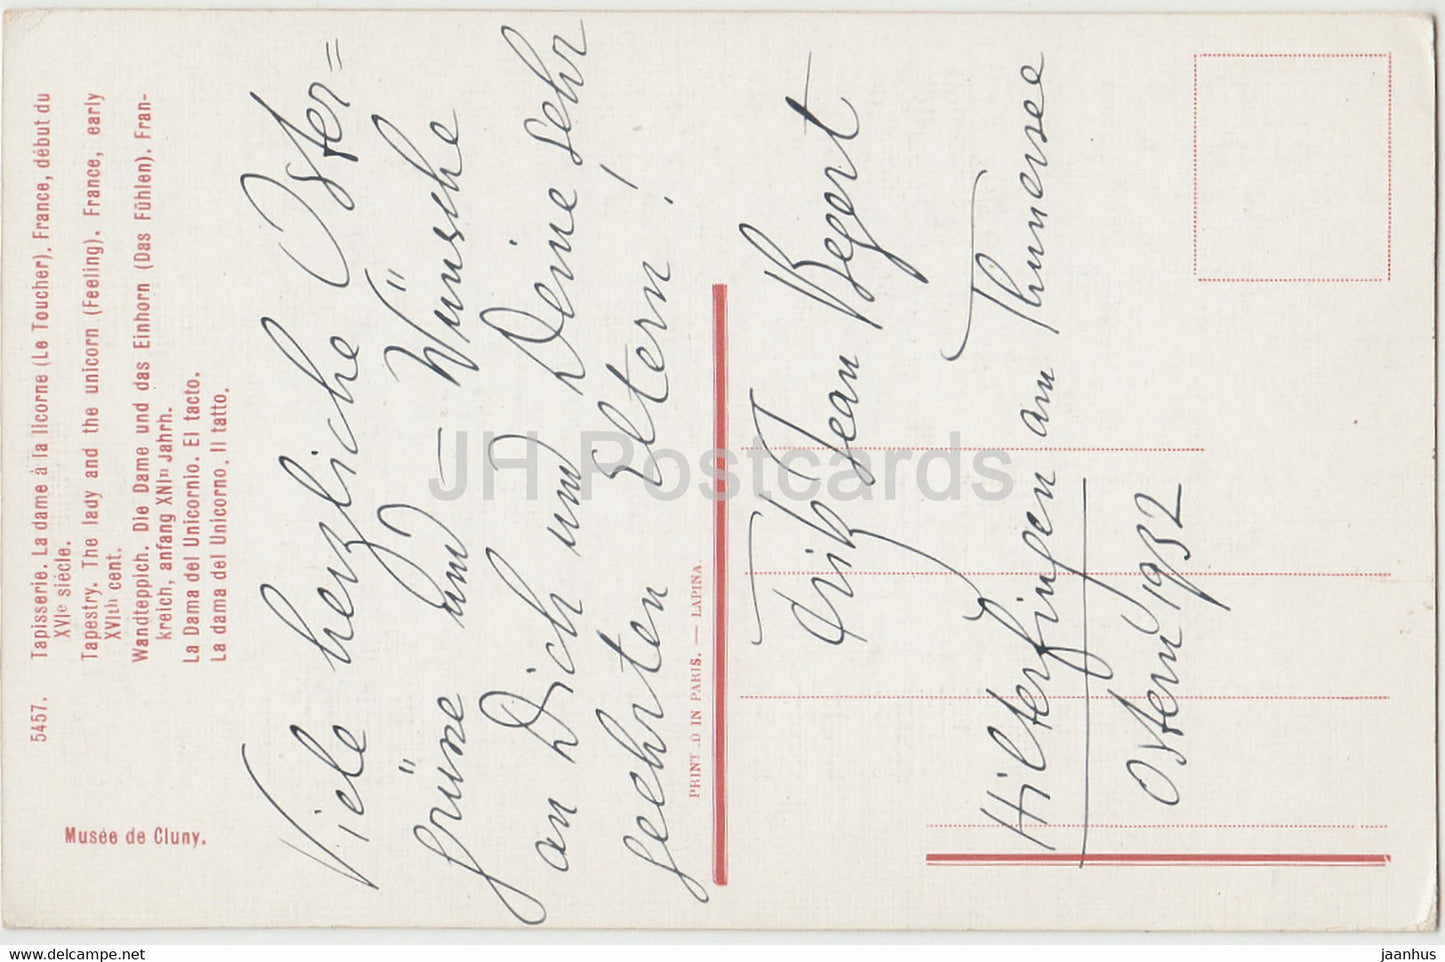 Musée de Cluny.
5457. Tapisserie. La dame à la licorne (Le Toucher). France, début du
XVIe siècle.
Tapestry. The lady and the unicorn (Feeling). France, early
XVIth cent.
Wandteppich. Die Dame und das Einhorn (Das Fühlen). Fran-
kreich, anfang XNIten Jahrh.
La Dama del Unicornio. El tacto.
La dama del Unicorno. Il tatto.
Viele herzliche Oster=
grüsse und - Wünsche
an Dich und Deine sehr
geehrten Eltern!
PRINTED IN PARIS. — LAPINA.
Fritz Jean Begert
Hilterfingen am Thunersee
Ostern 1932
JH Postcards
jaanhus